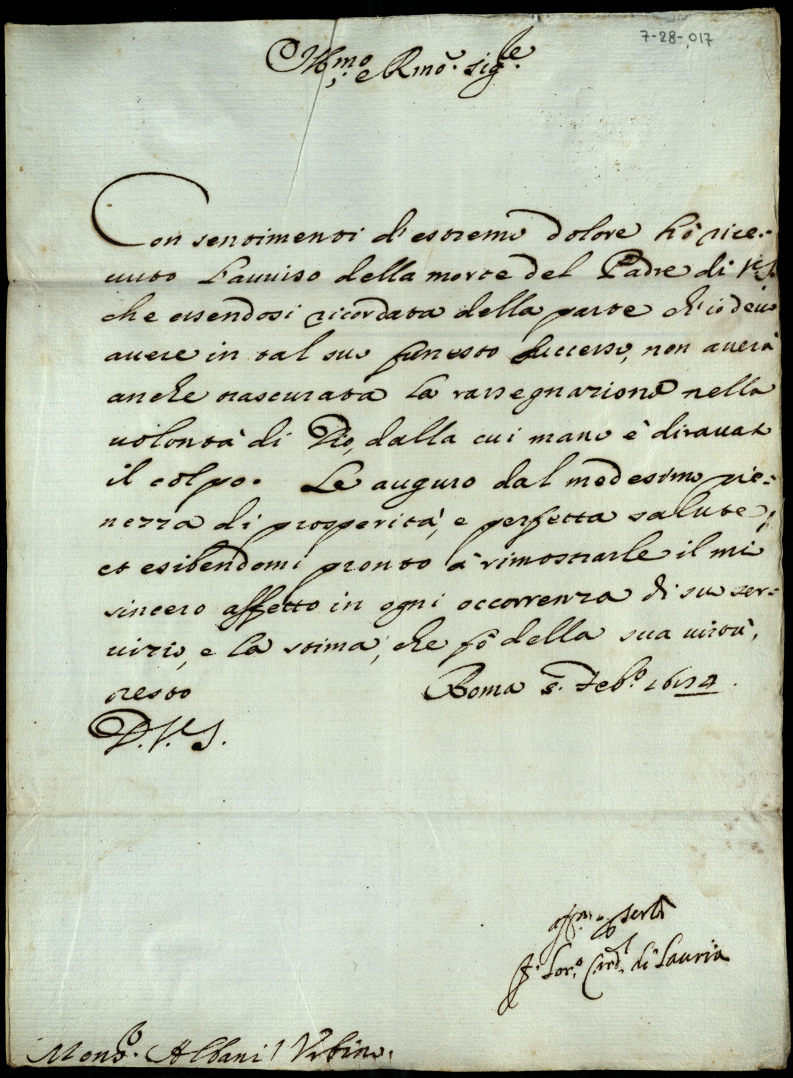 7-28-017
Ill.mo e R.mo Sig.re
Con sentimenti d'estremo dolore hò rice-
uuto l'auuiso della morte del Padre di V.S.
che essendosi ricordata della parte ch'io deuo
auere in tal suo funesto successo, non auerà
anche trascurata la rassegnazione nella
uolontà di Dio, dalla cui mano è
il colpo. Le auguro dal medesimo pie-
nezza di prosperità, e perfetta salute,
et esibendomi pronto à rimostrarle il mi
sincero affetto in ogni occorrenza di suo ser-
uizio, e la stima, che fò della sua uirtù,
resto Roma Feb.o
D.V.S.
aff.mo per ser.la
F. Lor.o Card.l di Lauria
Mons.r Albani Vrbino.